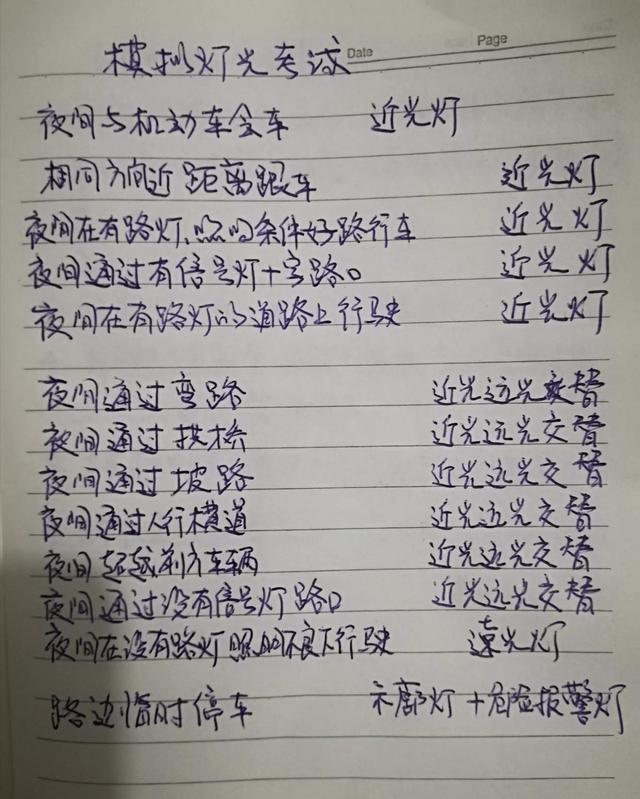 Date Page
模拟灯光考试
夜间与机动车会车 近光灯
相同方向近距离跟车 近光灯
夜间在有路灯、照明条件好路行车 近光灯
夜间通过有信号灯十字路口 近光灯
夜间在有路灯的道路上行驶 近光灯
夜间通过弯路 近光远光交替
夜间通过拱桥 近光远光交替
夜间通过坡路 近光远光交替
夜间通过人行横道 近光远光交替
夜间超越前方车辆 近光远光交替
夜间通过没有信号灯路口 近光远光交替
夜间在没有路灯照明不良下行驶 远光灯
路边临时停车 示廓灯+危险报警灯